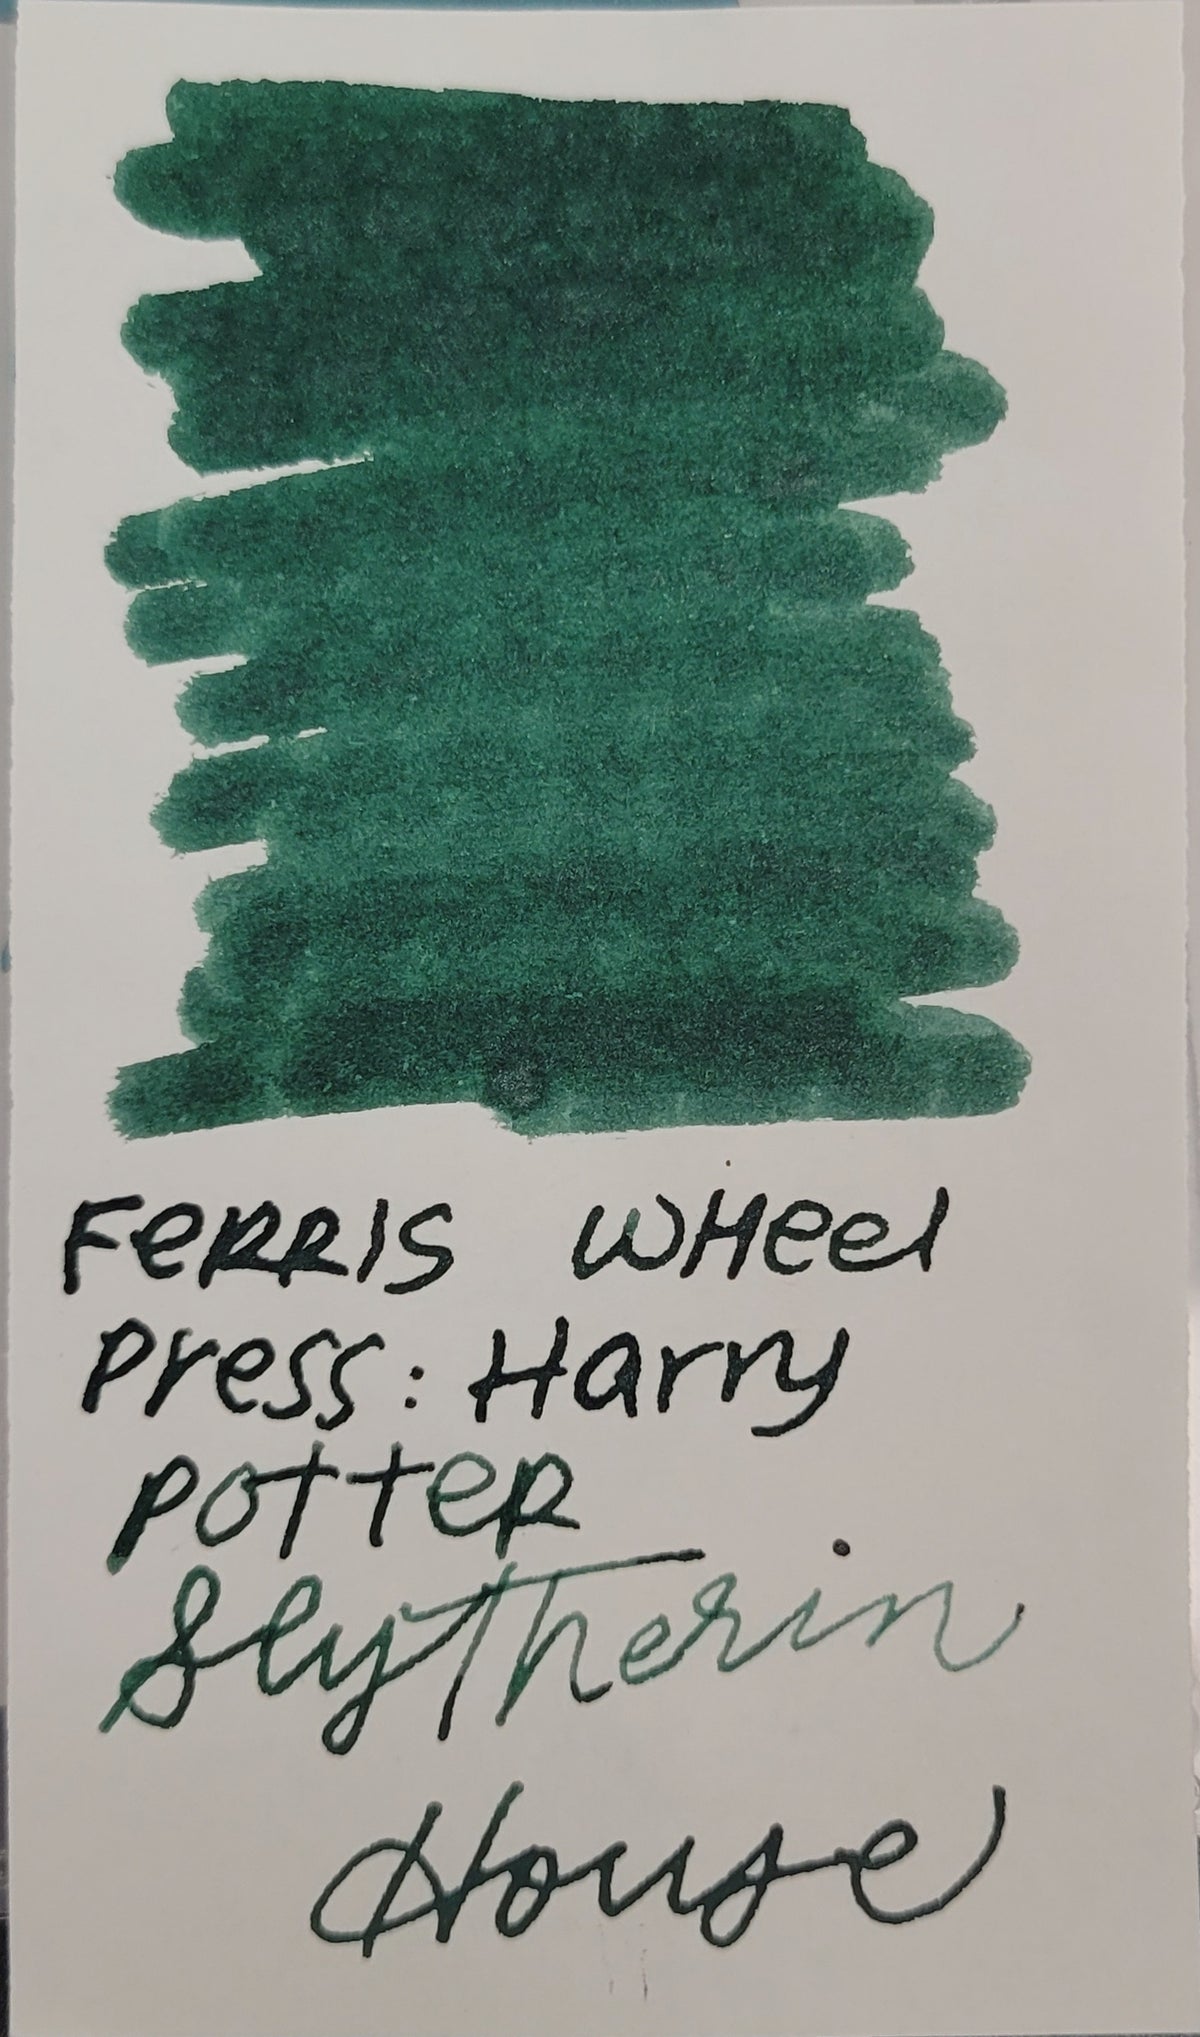 FeRRIS WHeel
Press: Harry
POTTeR
Slytherin
House